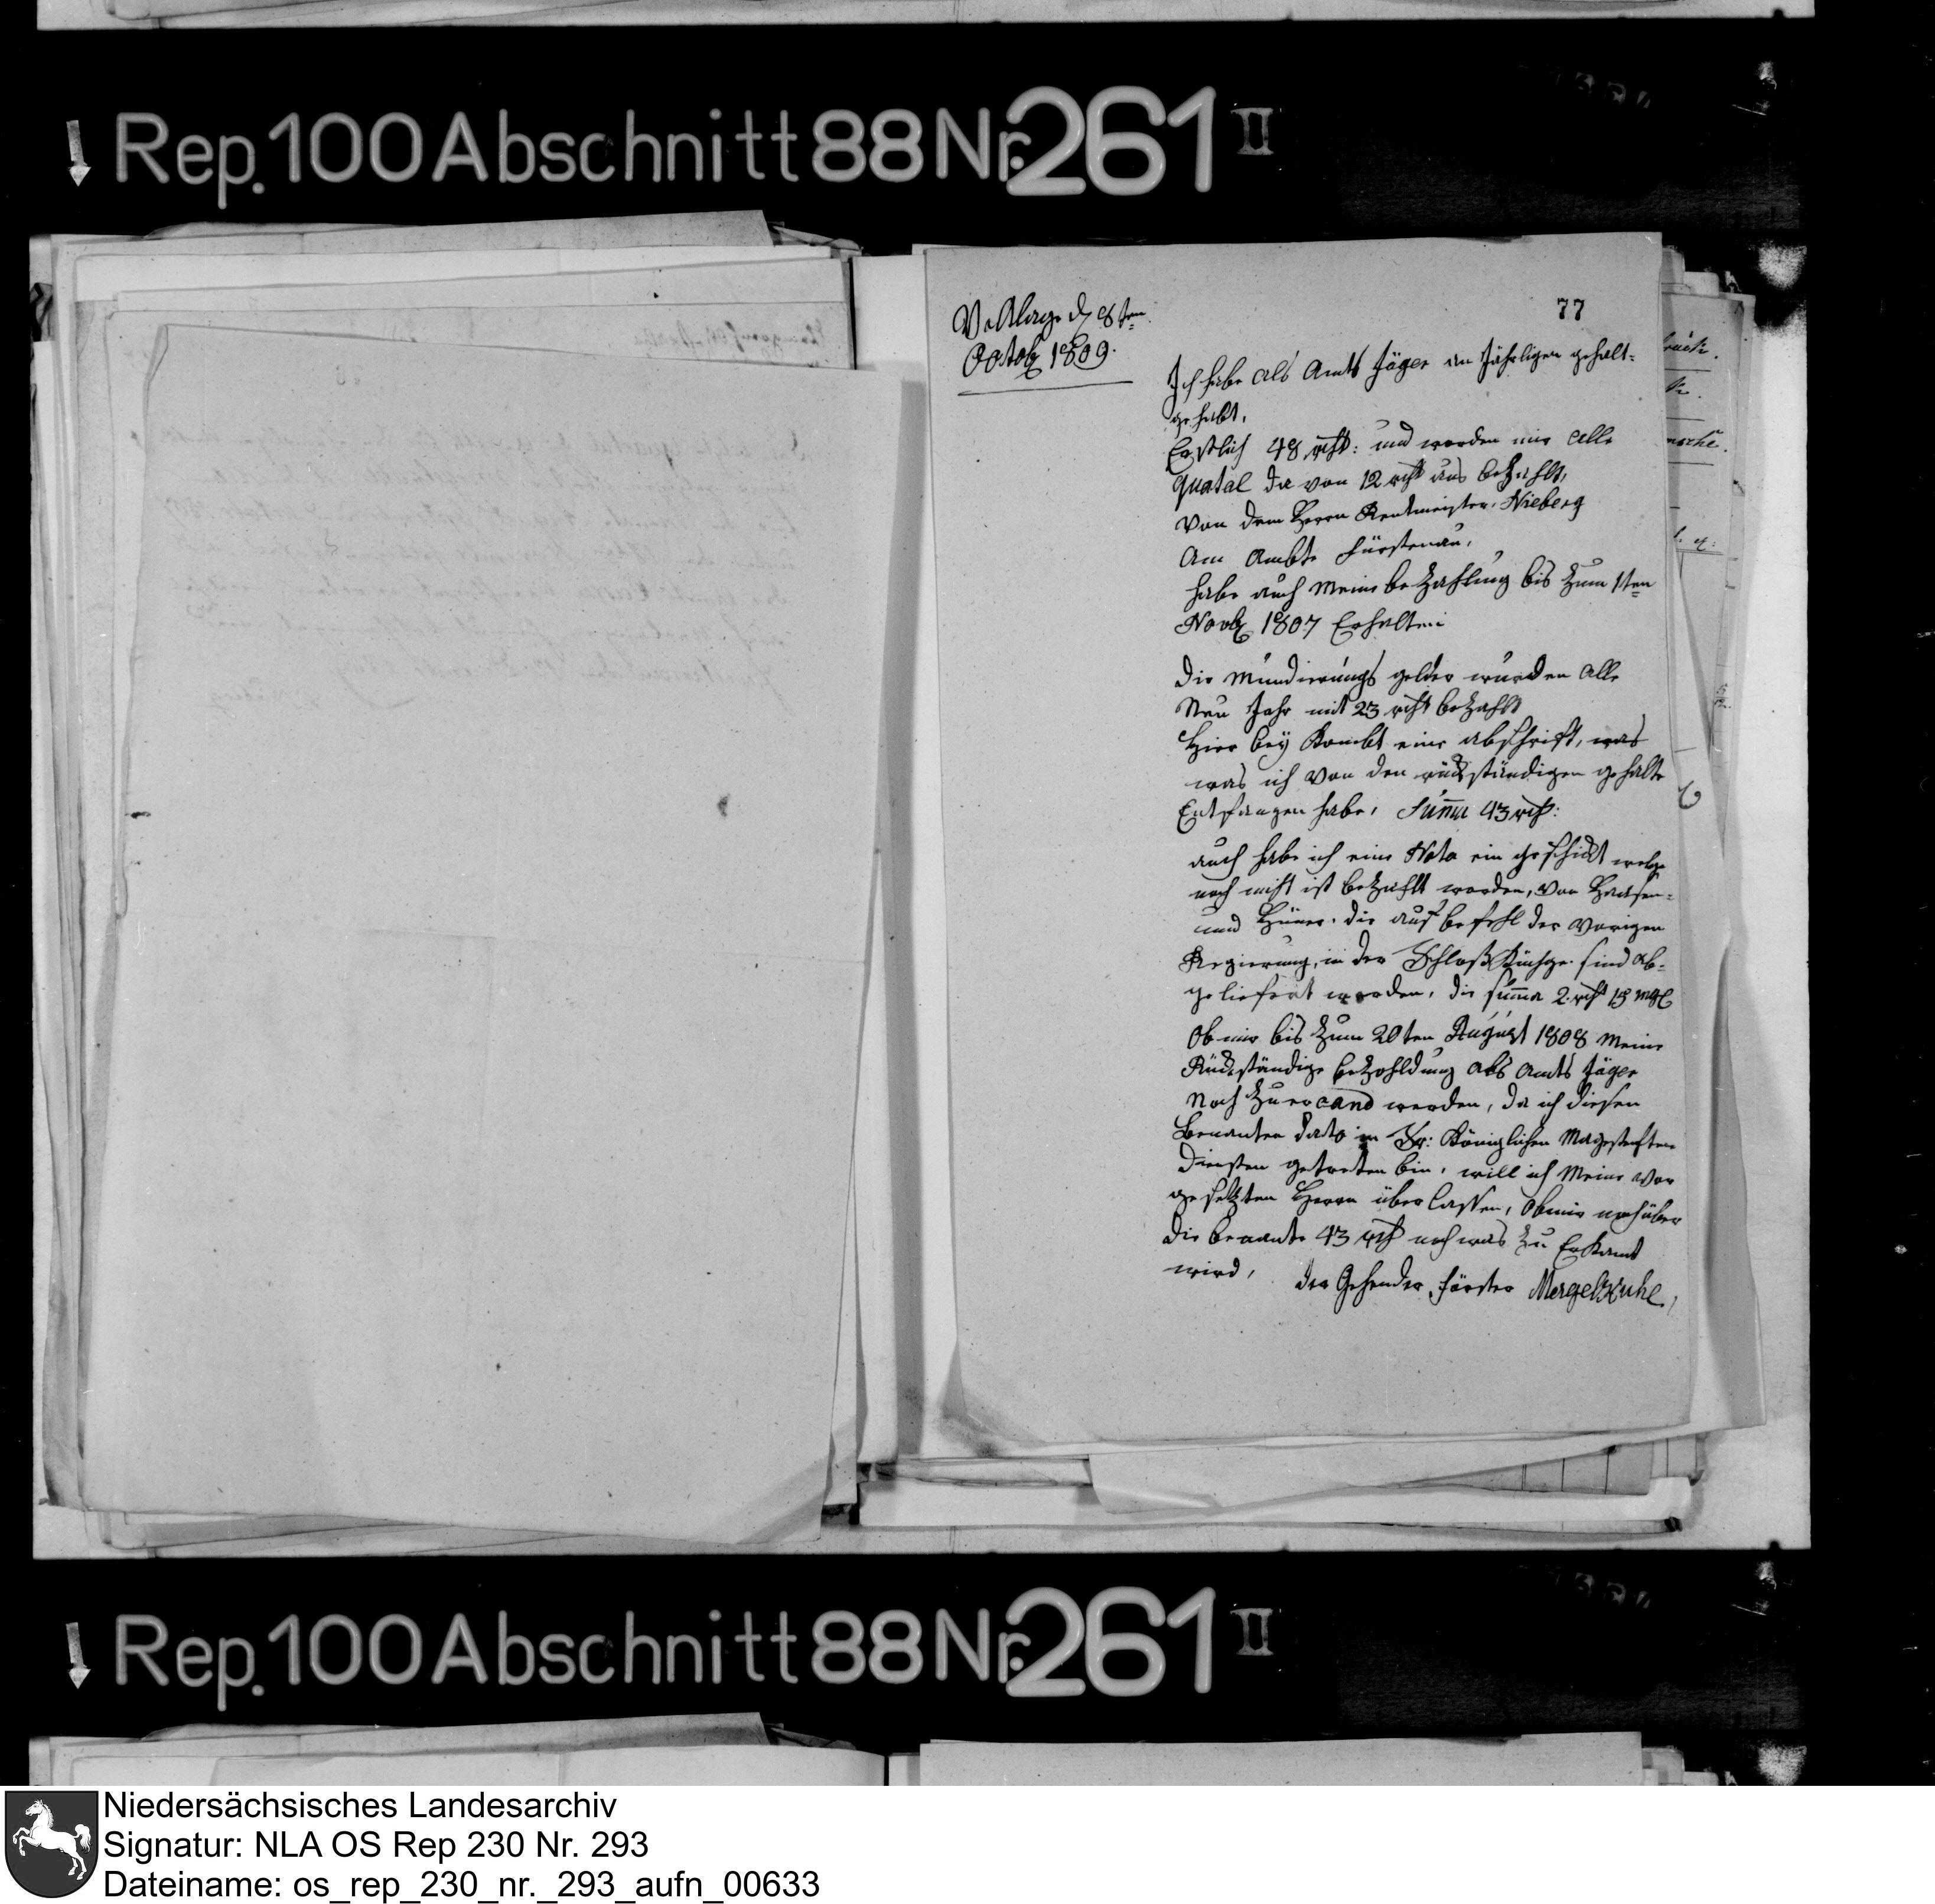 Rep. 100 Abschnitt 88 Nr. 261 II
77
Vollage d 8ten
Octob 1809.
Ich habe als Amts Jäger an Jährligen gehalt-
gehabt,
Erstlich 48 rthl: und worden mir alle
quatal da von 12 rthl aus bezahlt,
von dem Herrn Rentmeister Nieberg
Am Ambte Fürstenau,
habe auch meine bezahlung bis zum 1ten
Novb 1807 Erhalten
die Mundierungs gelder wurden alle
Neu Jahr mit 23 rthl bezahlt
Hier bey kombt eine abschrift, was
was ich von den rückständigen gehalte
Entfangen habe, Summa 43 rth:
auch habe ich eine Nota ein geschickt welge
noch nicht ist bezahlt worden, von Haasen-
und Hüner. die auf befehl der vorigen
Regierung, in der Schloß Küchge sind ab-
geliefert worden, die summa 2 rth 15 mgl
Ob mir bis zum 20ten August 1808 meine
Rückständige bezohldung als Amts Jäger
Noch zu er cand werden, da ich diesen
benanten dato in Sr: Königlichen Magestesten
diensten getreten bin, will ich meine vor
gesetzten Herrn über lassen, Ob mir noch über
die benante 43 rth noch was zu Erkant
wird,
der Gehender Förster Mergelkuhl,
Rep. 100 Abschnitt 88 Nr. 261 II
Niedersächsisches Landesarchiv
Signatur: NLA OS Rep 230 Nr. 293
Dateiname: os_rep_230_nr._293_aufn_00633